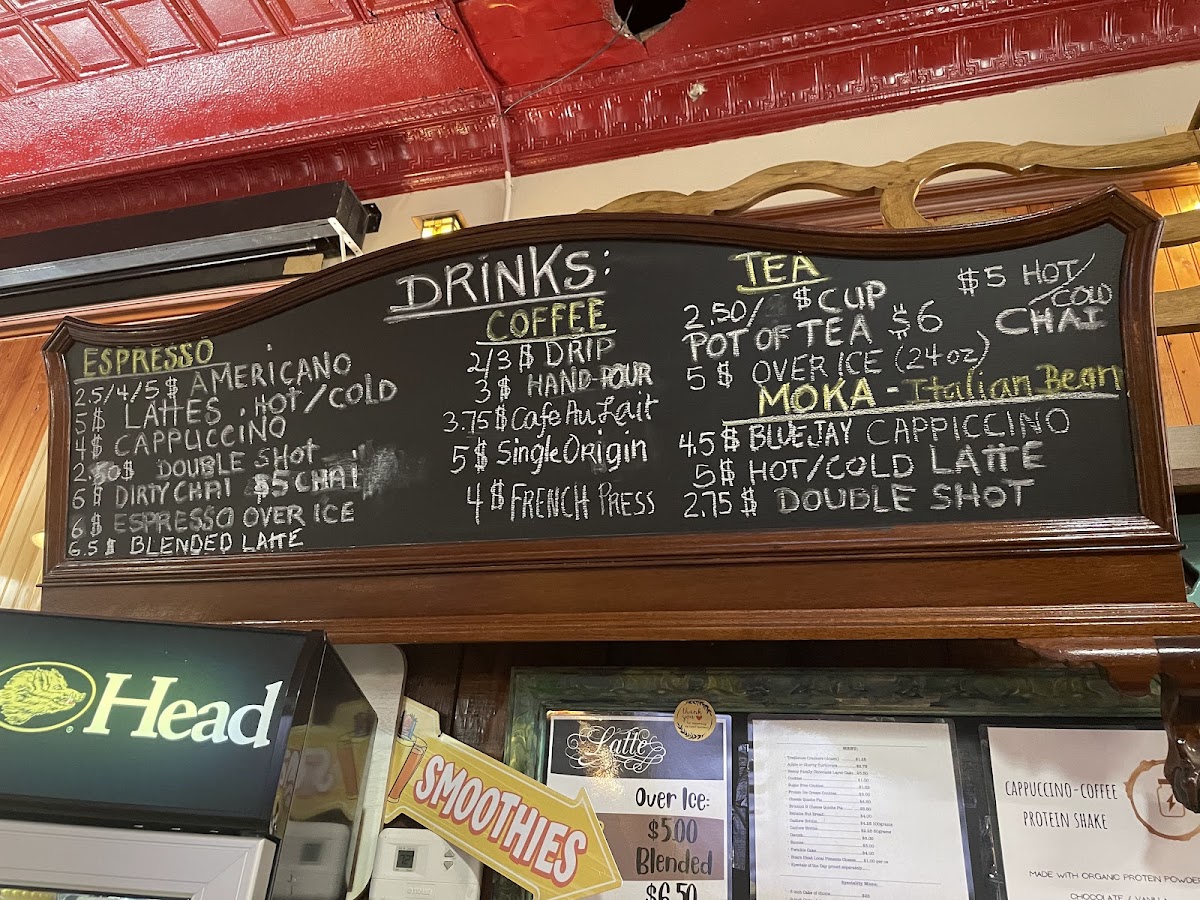 DRINKS:
ESPRESSO
2.5/4/5$ AMERICANO
5$ LATTES . HOT/COLD
4$ CAPPUCCINO
2.50$ DOUBLE SHOT
6$ DIRTY CHAI $5 CHAI
6$ ESPRESSO OVER ICE
6.5$ BLENDED LATTE
COFFEE
2/3$ DRIP
3$ HAND-POUR
3.75$ Cafe Au Lait
5$ Single Origin
4$ FRENCH PRESS
TEA
2.50/$ CUP
POT OF TEA $6
5$ OVER ICE (24oz)
$5 HOT/
COLD
CHAI
MOKA - Italian Bean
4.5$ BLUEJAY CAPPICCINO
5$ HOT/COLD LATTE
2.75$ DOUBLE SHOT
Head
SMOOTHIES
Latte
thank you
Over Ice:
$5.00
Blended
$6.50
MENU:
Specialty Menu
CAPPUCCINO-COFFEE
PROTEIN SHAKE
MADE WITH ORGANIC PROTEIN POWDER
CHOCOLATE / VANILLA